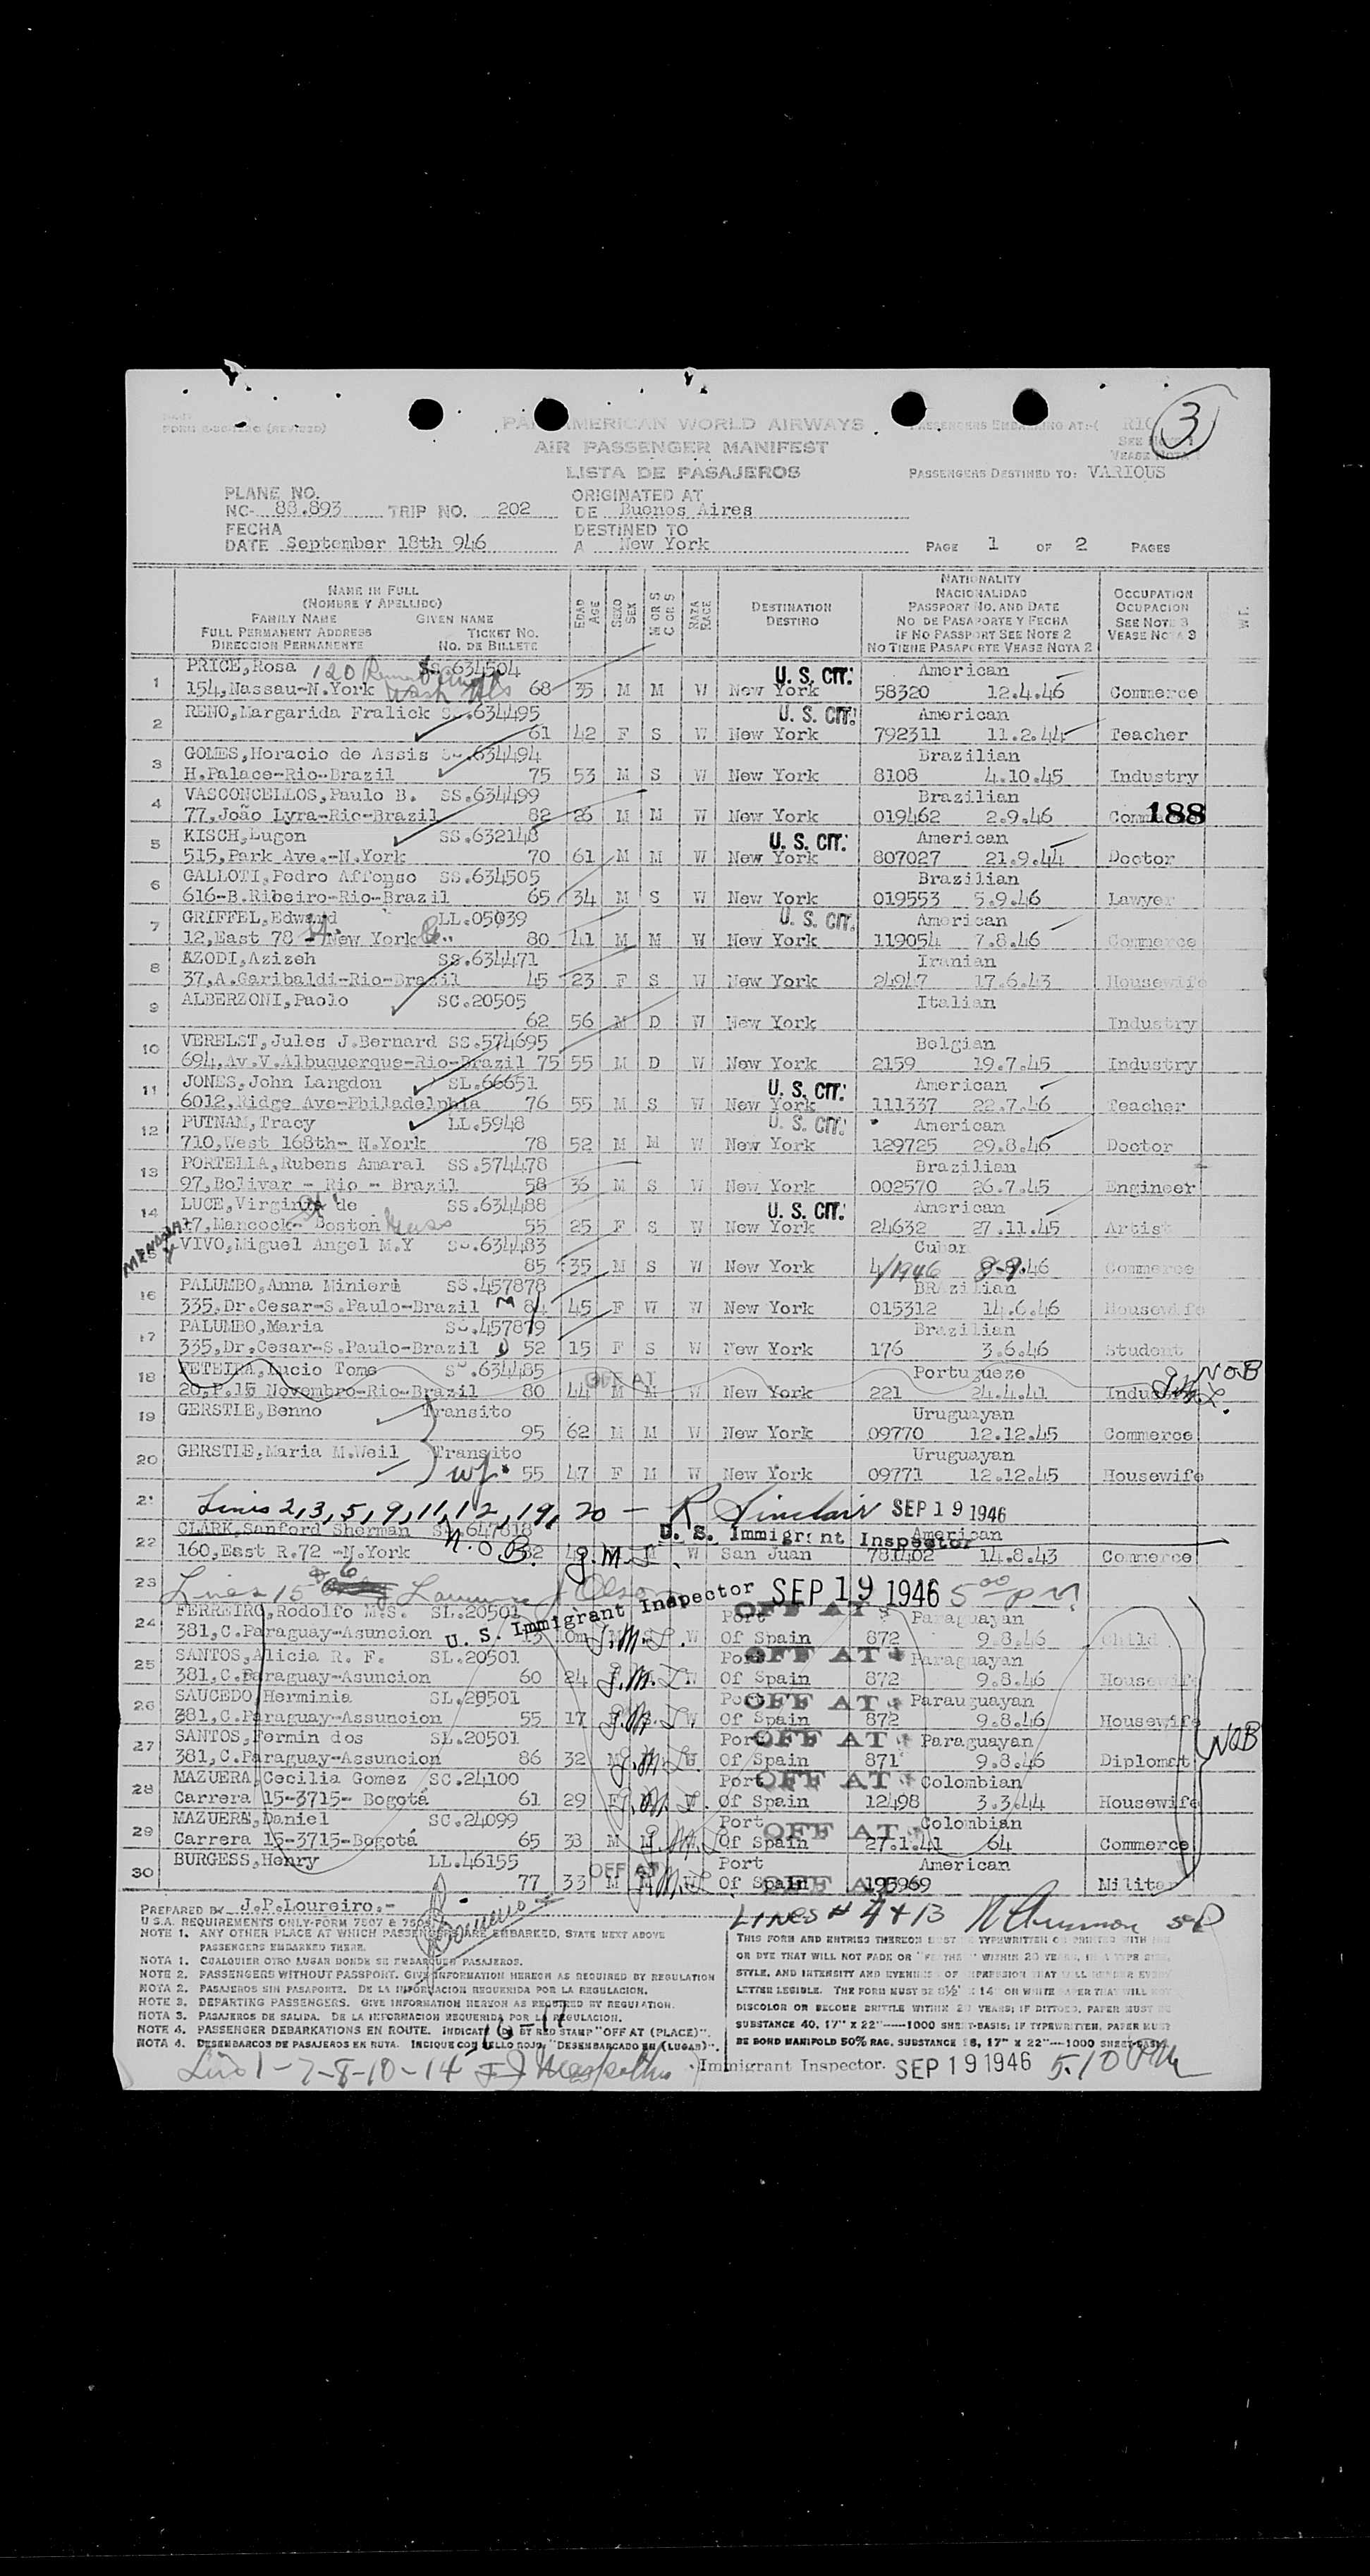 3
FORM (REVISED)
PAN AMERICAN WORLD AIRWAYS
PASSENGERS EMBARKING AT:-( RIO
AIR PASSENGER MANIFEST
SEE NOTE 1
VEASE NOTA 1
LISTA DE PASAJEROS
PASSENGERS DESTINED TO: VARIOUS
PLANE NO.
NC- 88.893 TRIP NO. 202
ORIGINATED AT
DE Buenos Aires
FECHA
DATE September 18th 946
DESTINED TO
A New York
PAGE 1 OF 2 PAGES
NAME IN FULL
(NOMBRE Y APELLIDO)
FAMILY NAME GIVEN NAME
FULL PERMANENT ADDRESS TICKET NO.
DIRECCION PERMANENTE NO. DE BILLETE
EDAD AGE
SEXO SEX
M OR S C OR S
RAZA RACE
DESTINATION
DESTINO
NATIONALITY
NACIONALIDAD
PASSPORT NO. AND DATE
NO DE PASAPORTE Y FECHA
IF NO PASSPORT SEE NOTE 2
NO TIENE PASAPORTE VEASE NOTA 2
OCCUPATION
OCUPACION
SEE NOTE 3
VEASE NOTA 3
WT.
1 PRICE,Rosa 120 SS.634504 U. S. CIT. American
154,Nassau-N.York Wash 68 35 M M W New York 58320 12.4.46 Commerce
2 RENO,Margarida Fralick SS.634495 U. S. CIT. American
61 42 F S W New York 792311 11.2.44 Teacher
3 GOMES,Horacio de Assis SS.634494 Brazilian
H.Palace-Rio-Brazil 75 53 M S W New York 8108 4.10.45 Industry
4 VASCONCELLOS,Paulo B. SS.634499 Brazilian
77,João Lyra-Rio-Brazil 82 26 M M W New York 019462 2.9.46 188
5 KISCH,Eugen SS.632148 U. S. CIT. American
515,Park Ave.-N.York 70 61 M M W New York 807027 21.9.44 Doctor
6 GALLOTI,Pedro Affonso SS.634505 Brazilian
616-B.Ribeiro-Rio-Brazil 65 34 M S W New York 019553 5.9.46 Lawyer
7 GRIFFEL,Edward LL.05039 U. S. CIT. American
12,East 78 - New York 80 41 M M W New York 119054 7.8.46 Commerce
8 AZODI,Azizeh SS.634471 Iranian
37,A.Garibaldi-Rio-Brazil 45 23 F S W New York 24947 17.6.43 Housewife
9 ALBERZONI,Paolo SC.20505 Italian
62 56 M D W New York Industry
10 VERELST,Jules J.Bernard SS.574695 Belgian
694,Av.V.Albuquerque-Rio-Brazil 75 55 M D W New York 2159 19.7.45 Industry
11 JONES,John Langdon SL.66651 U. S. CIT. American
6012,Ridge Ave-Philadelphia 76 55 M S W New York 111337 22.7.46 Teacher
12 PUTNAM,Tracy LL.5948 U. S. CIT. American
710,West 168th- N.York 78 52 M M W New York 129725 29.8.46 Doctor
13 PORTELLA,Rubens Amaral SS.574478 Brazilian
97,Bolivar - Rio - Brazil 58 36 M S W New York 002570 26.7.45 Engineer
14 LUCE,Virginia de SS.634488 U. S. CIT. American
17,Hancock- Boston Mass 55 25 F S W New York 24632 27.11.45 Artist
VIVO,Miguel Angel M.Y SS.634483 Cuban
85 35 M S W New York 4/1946 8-9.46 Commerce
16 PALUMBO,Anna Minieri SS.457878 BRAzilian
335,Dr.Cesar-S.Paulo-Brazil M 84 45 F W W New York 015312 14.6.46 Housewife
17 PALUMBO,Maria SS.457879 Brazilian
335,Dr.Cesar-S.Paulo-Brazil D 52 15 F S W New York 176 3.6.46 Student
18 FETEIRA,Lucio Tome SS.634485 OFF AT Portugueze NOB
20,P.15 Novembro-Rio-Brazil 80 44 M M W New York 221 24.4.41 Industry
19 GERSTLE,Benno Transito Uruguayan
95 62 M M W New York 09770 12.12.45 Commerce
20 GERSTLE,Maria M.Weil Transito Uruguayan
wf 55 47 F M W New York 09771 12.12.45 Housewife
21 Lines 2,3,5,9,11,12,19,20 - R Sinclair SEP 19 1946
U. S. Immigrant Inspector
22 CLARK,Sanford Sherman SS.647818 American
160,East R.72 -N.York N.O.B. 82 J.M.L. W San Juan 781402 14.8.43 Commerce
23 Lines 15 & 6 SEP 19 1946 5 00 PM
U. S. Immigrant Inspector
24 FERREIRO,Rodolfo M.S. SL.20501 Port OFF AT Paraguayan
381,C.Paraguay-Asuncion 13 10m J.M.L. W Of Spain 872 9.8.46 Child
25 SANTOS,Alicia R. F. SL.20501 Port OFF AT Paraguayan
381,C.Paraguay-Asuncion 60 24 J.M.L. W Of Spain 872 9.8.46 Housewife
26 SAUCEDO,Herminia SL.20501 Port OFF AT Parauguayan
381,C.Paraguay-Assuncion 55 17 J.M.L W Of Spain 872 9.8.46 Housewife
27 SANTOS,Fermin dos SL.20501 Port OFF AT Paraguayan
381,C.Paraguay-Assuncion 86 32 M J.M.L. W Of Spain 871 9.8.46 Diplomat NOB
28 MAZUERA,Cecilia Gomez SC.24100 Port OFF AT Colombian
Carrera 15-3715- Bogotá 61 29 F J.M.L. Of Spain 12498 3.3.44 Housewife
29 MAZUERA,Daniel SC.24099 Port OFF AT Colombian
Carrera 15-3715-Bogotá 65 33 M M J.M.L Of Spain 27.1.41 64 Commerce
30 BURGESS,Henry LL.46155 OFF AT Port American
77 33 M M J.M.L Of Spain OFF AT 195969 Militar
PREPARED BY J.P.Loureiro.-
LINES # 4 + 13
U S.A. REQUIREMENTS ONLY-FORM 7507 & 7509
NOTE 1. ANY OTHER PLACE AT WHICH PASSENGERS ARE EMBARKED, STATE NEXT ABOVE
PASSENGERS EMBARKED THERE.
NOTA 1. CUALQUIER OTRO LUGAR DONDE SE EMBARQUEN PASAJEROS.
NOTE 2. PASSENGERS WITHOUT PASSPORT. GIVE INFORMATION HEREON AS REQUIRED BY REGULATION
NOTA 2. PASAJEROS SIN PASAPORTE. DE LA INFORMACION REQUERIDA POR LA REGULACION.
NOTE 3. DEPARTING PASSENGERS. GIVE INFORMATION HEREON AS REQUIRED BY REGULATION.
NOTA 3. PASAJEROS DE SALIDA. DE LA INFORMACION REQUERIDA POR LA REGULACION.
NOTE 4. PASSENGER DEBARKATIONS EN ROUTE. INDICATED BY RED STAMP "OFF AT (PLACE)".
NOTA 4. DESEMBARCOS DE PASAJEROS EN RUTA. INDIQUE CON SELLO ROJO, "DESEMBARCADO EN (LUGAR)".
THIS FORM AND ENTRIES THEREON MUST BE TYPEWRITTEN OR PRINTED WITH INK
OR DYE THAT WILL NOT FADE OR "FEATHER" WITHIN 20 YEARS, IN A TYPE SIZE,
STYLE, AND INTENSITY AND EVENNESS OF IMPRESSION THAT WILL RENDER EVERY
LETTER LEGIBLE. THE FORM MUST BE 8½" X 14" ON WHITE PAPER THAT WILL NOT
DISCOLOR OR BECOME BRITTLE WITHIN 20 YEARS; IF DITTOED, PAPER MUST BE
SUBSTANCE 40, 17" X 22"-----1000 SHEET-BASIS; IF TYPEWRITTEN, PAPER MUST
BE BOND MANIFOLD 50% RAG, SUBSTANCE 16, 17" X 22"---1000 SHEET-BASIS
16-17
Line 1-7-8-10-14 Immigrant Inspector. SEP 19 1946 5.10 PM